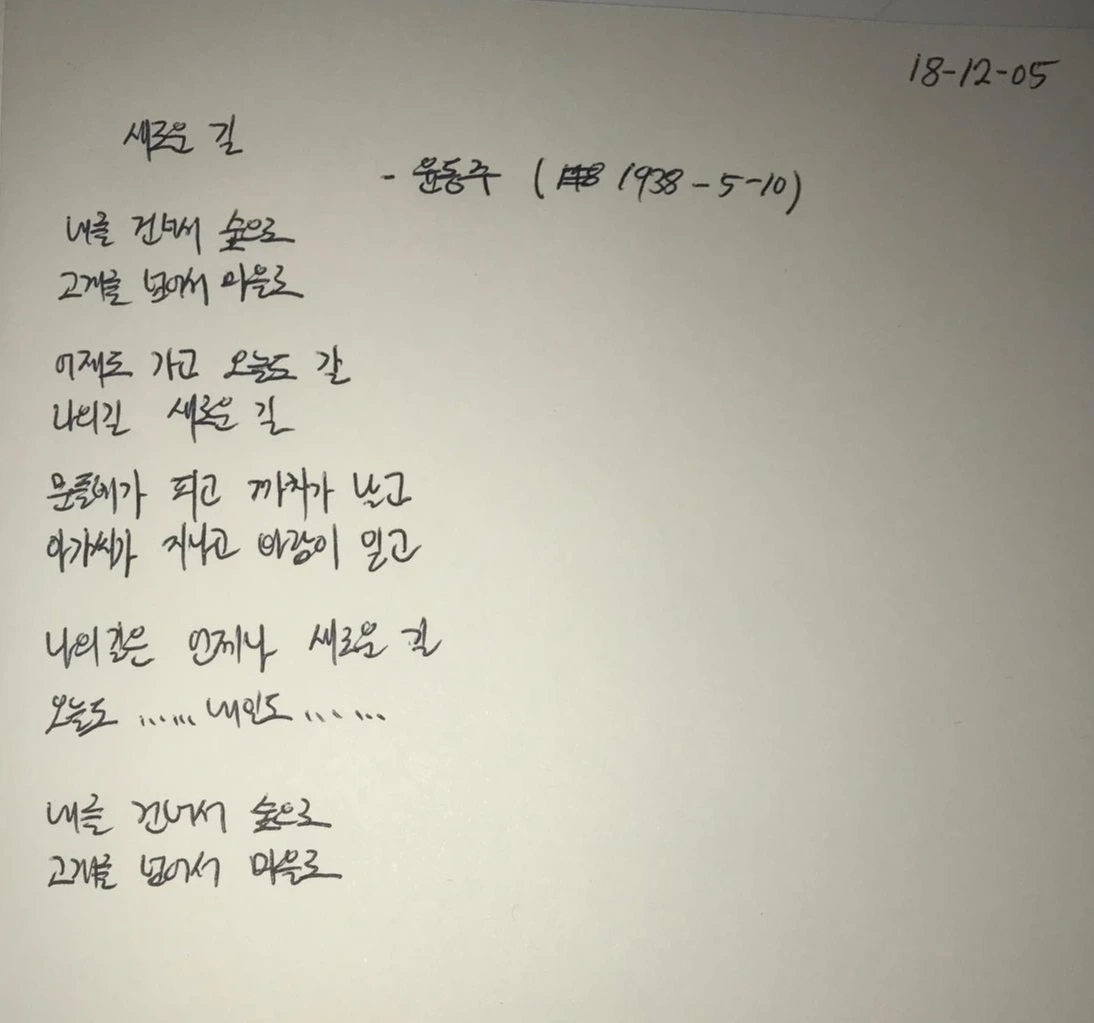 18-12-05
새로운 길
- 윤동주 ( 1938-5-10)
내를 건너서 숲으로
고개를 넘어서 마을로
어제도 가고 오늘도 갈
나의길 새로운 길
문들레가 피고 까치가 날고
아가씨가 지나고 바람이 일고
나의길은 언제나 새로운 길
오늘도 ...... 내일도 ......
내를 건너서 숲으로
고개를 넘어서 마을로